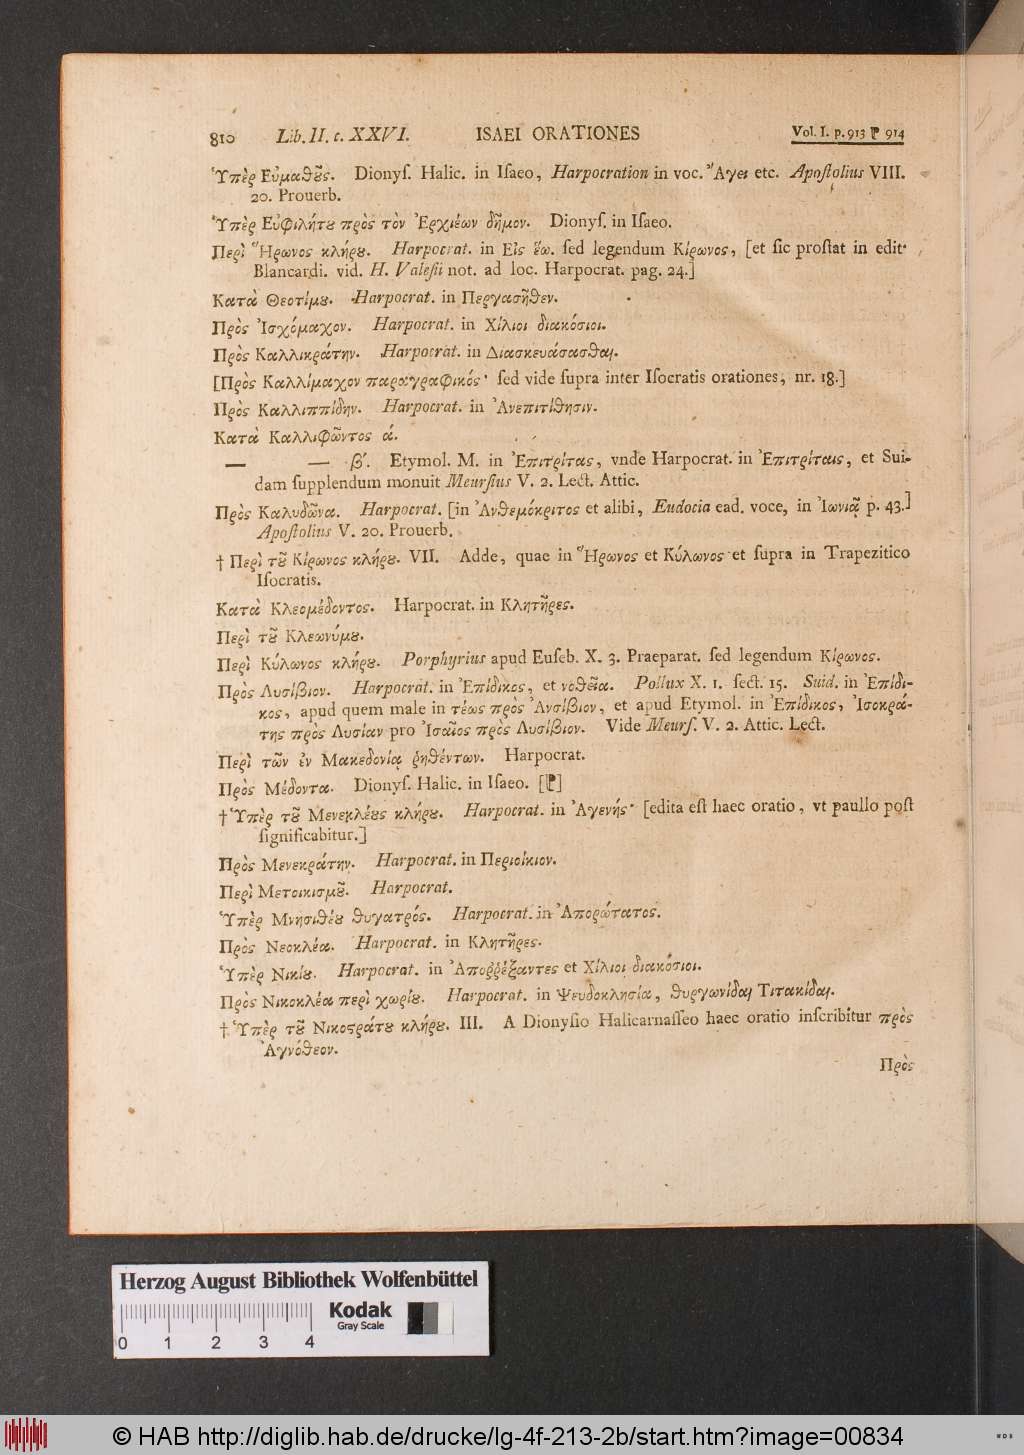 810 Lib. II. c. XXVI. ISAEI ORATIONES Vol. I. p. 913 ⁋ 914
Ὑπὲρ Εὐμαθοῦς. Dionyſ. Halic. in Iſaeo, Harpocration in voc. Ἄγει etc. Apoſtolius VIII.
20. Prouerb.
Ὑπὲρ Εὐφιλήτου πρὸς τὸν Ἐρχιέων δῆμον. Dionyſ. in Iſaeo.
Περὶ Ἥρωνος κλήρου. Harpocrat. in Εἰς ἕω. ſed legendum Κίρωνος, [et ſic proſtat in edit·
Blancardi. vid. H. Valeſii not. ad loc. Harpocrat. pag. 24.]
Κατὰ Θεοτίμου. Harpocrat. in Περγασῆθεν.
Πρὸς Ἰσχόμαχον. Harpocrat. in Χίλιοι διακόσιοι.
Πρὸς Καλλικράτην. Harpocrat. in Διασκευάσασθαι.
[Πρὸς Καλλίμαχον παραγραφικός· ſed vide ſupra inter Iſocratis orationes, nr. 18.]
Πρὸς Καλλιππίδην. Harpocrat. in Ἀνεπιτίθησιν.
Κατὰ Καλλιφῶντος ά.
— — β΄. Etymol. M. in Ἐπιτρίτας, vnde Harpocrat. in Ἐπιτρίταις, et Sui-
dam ſupplendum monuit Meurſius V. 2. Lect. Attic.
Πρὸς Καλυδῶνα. Harpocrat. [in Ἀνθεμόκριτος et alibi, Eudocia ead. voce, in Ἰωνιᾷ p. 43.]
Apoſtolius V. 20. Prouerb.
† Περὶ τοῦ Κίρωνος κλήρου. VII. Adde, quae in Ἥρωνος et Κύλωνος et ſupra in Trapezitico
Iſocratis.
Κατὰ Κλεομέδοντος. Harpocrat. in Κλητῆρες.
Περὶ τοῦ Κλεωνύμου.
Περὶ Κύλωνος κλήρου. Porphyrius apud Euſeb. X. 3. Praeparat. ſed legendum Κίρωνος.
Πρὸς Λυσίβιον. Harpocrat. in Ἐπίδικος, et νοθεῖα. Pollux X. 1. ſect. 15. Suid. in Ἐπίδι-
κος, apud quem male in τέως πρὸς Ἀνσίβιον, et apud Etymol. in Ἐπίδικος, Ἰσοκρά-
της πρὸς Λυσίαν pro Ἰσαῖος πρὸς Λυσίβιον. Vide Meurſ. V. 2. Attic. Lect.
Περὶ τῶν ἐν Μακεδονίᾳ ῥηθέντων. Harpocrat.
Πρὸς Μέδοντα. Dionyſ. Halic. in Iſaeo. [⁋]
† Ὑπὲρ τοῦ Μενεκλέους κλήρου. Harpocrat. in Ἀγενής· [edita eſt haec oratio, vt paullo poſt
ſignificabitur.]
Πρὸς Μενεκράτην. Harpocrat. in Περιοίκιον.
Περὶ Μετοικισμοῦ. Harpocrat.
Ὑπὲρ Μνησιθέου θυγατρός. Harpocrat. in Ἀπορώτατος.
Πρὸς Νεοκλέα. Harpocrat. in Κλητῆρες.
Ὑπὲρ Νικίου. Harpocrat. in Ἀποῤῥέξαντες et Χίλιοι διακόσιοι.
Πρὸς Νικοκλέα περὶ χωρίου. Harpocrat. in Ψευδοκλησία, θυργωνίδαι Τιτακίδαι.
† Ὑπὲρ τοῦ Νικοστράτου κλήρου. III. A Dionyſio Halicarnaſſeo haec oratio inſcribitur πρὸς
Ἁγνόθεον.
Πρὸς
Herzog August Bibliothek Wolfenbüttel
Kodak
Gray Scale
0 1 2 3 4
© HAB http://diglib.hab.de/drucke/lg-4f-213-2b/start.htm?image=00834
WDB